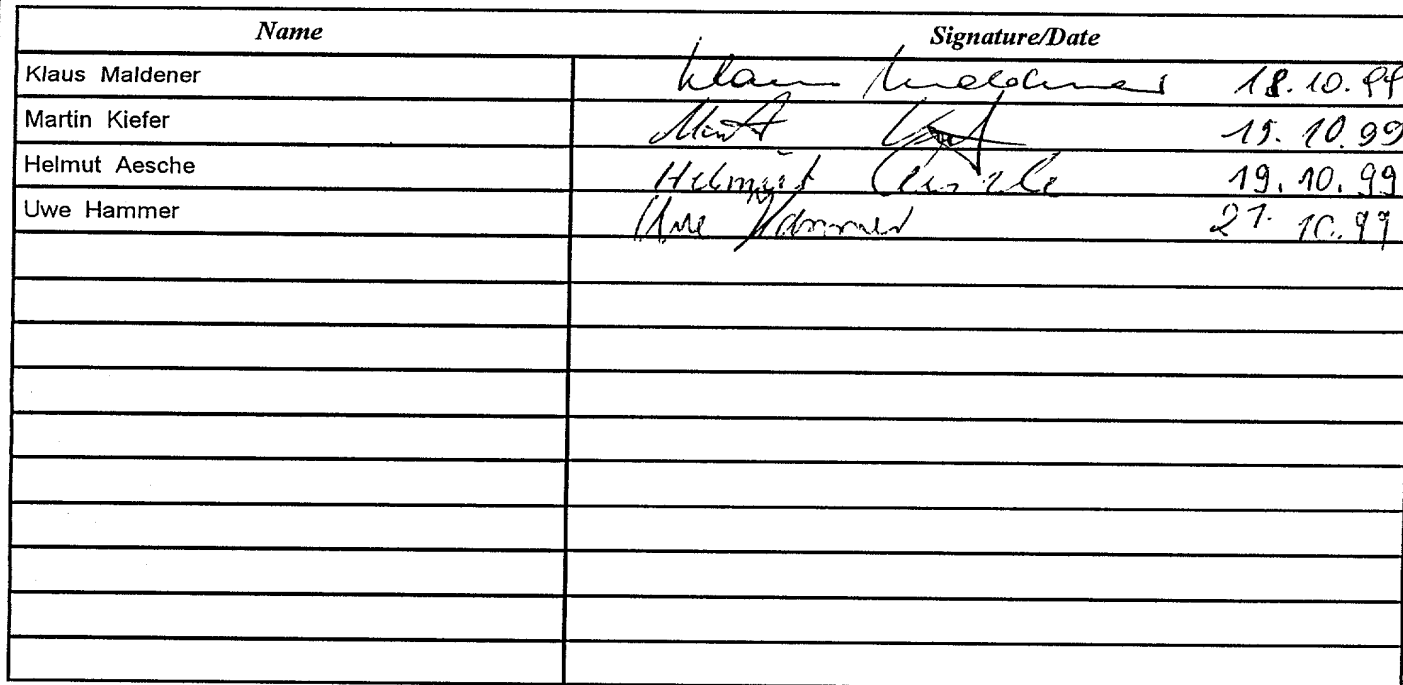 Name Signature/Date
Klaus Maldener Klaus Maldener 18.10.99
Martin Kiefer 15.10.99
Helmut Aesche Helmut Aesche 19.10.99
Uwe Hammer Uwe Hammer 21.10.99